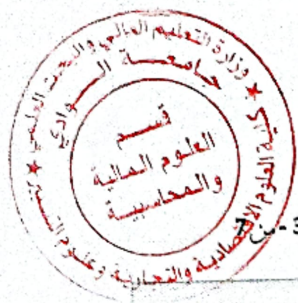 وزارة التعليم العالي والبحث العلمي
جامعة الوادي
كلية العلوم الاقتصادية والتجارية وعلوم التسيير
قسم
العلوم المالية
والمحاسبية